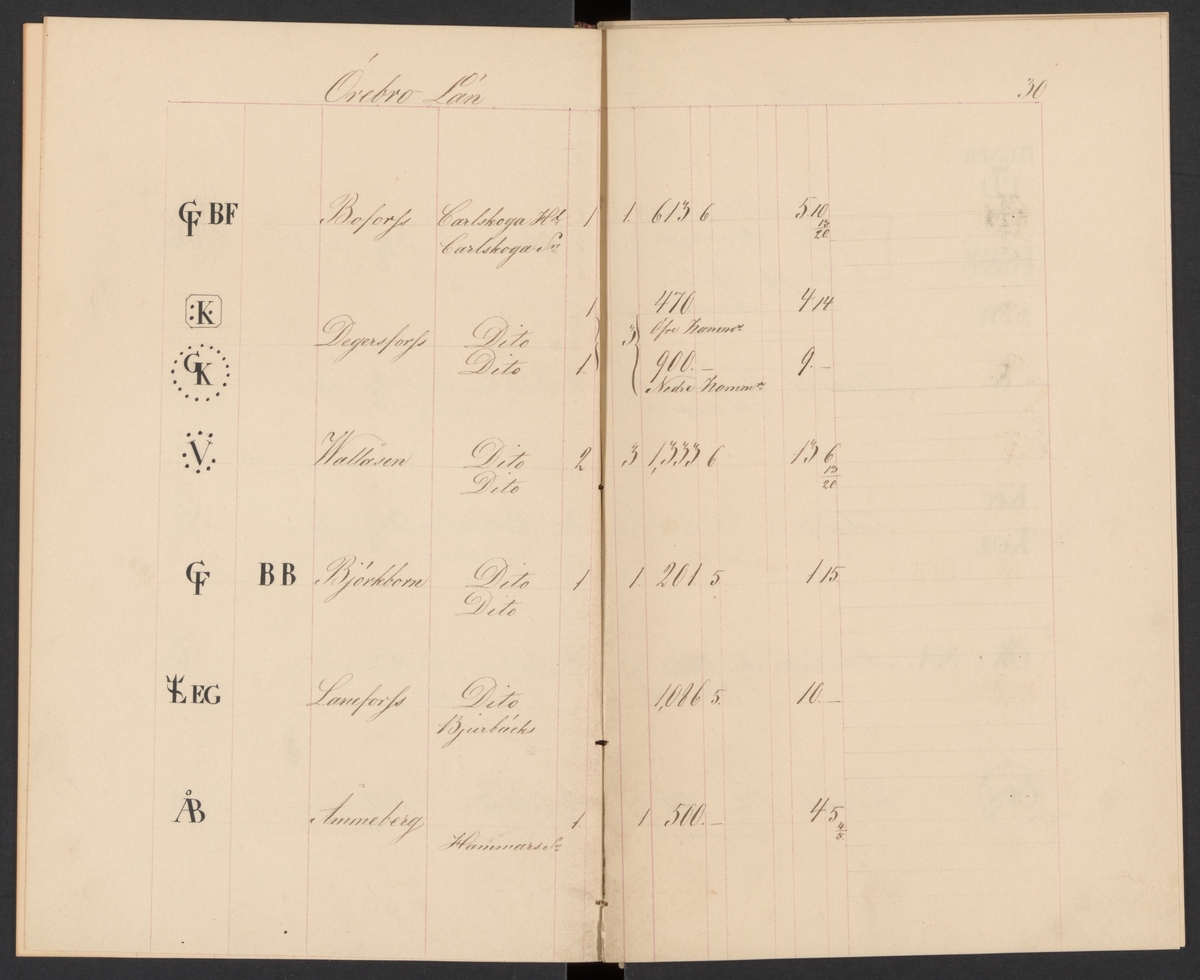 Örebro Län 30
GF BF Boforss Carlskoga Hd 1 1. 613 6 5 10 13/20
Carlskoga Sn
K 1 470 4 14
Degersforss Dito 3 Öfre Hammr
GK Dito 1. 900. — 9. —
Nedre Hammr
V Wallåsen Dito 2 3 1,333 6 13 6 13/20
Dito
GF BB Björkborn Dito 1 1. 201 5 1 15
Dito
L EG Laneforss Dito 1,086 5. 10. —
Bjurbäcks
ÅB Åmmeberg 1. 1 500. — 4 5 4/5
Hammars Sn